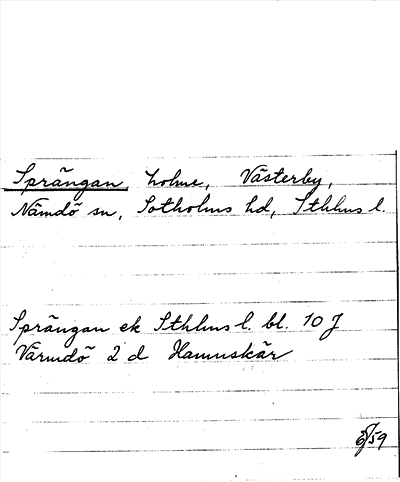 Sprängan, holme, Västerby,
Nämdö sn, Sotholms hd, Sthlms l.
Sprängan ek Sthlms l. bl. 10 J
Värmdö 2 d Hamnskär
59